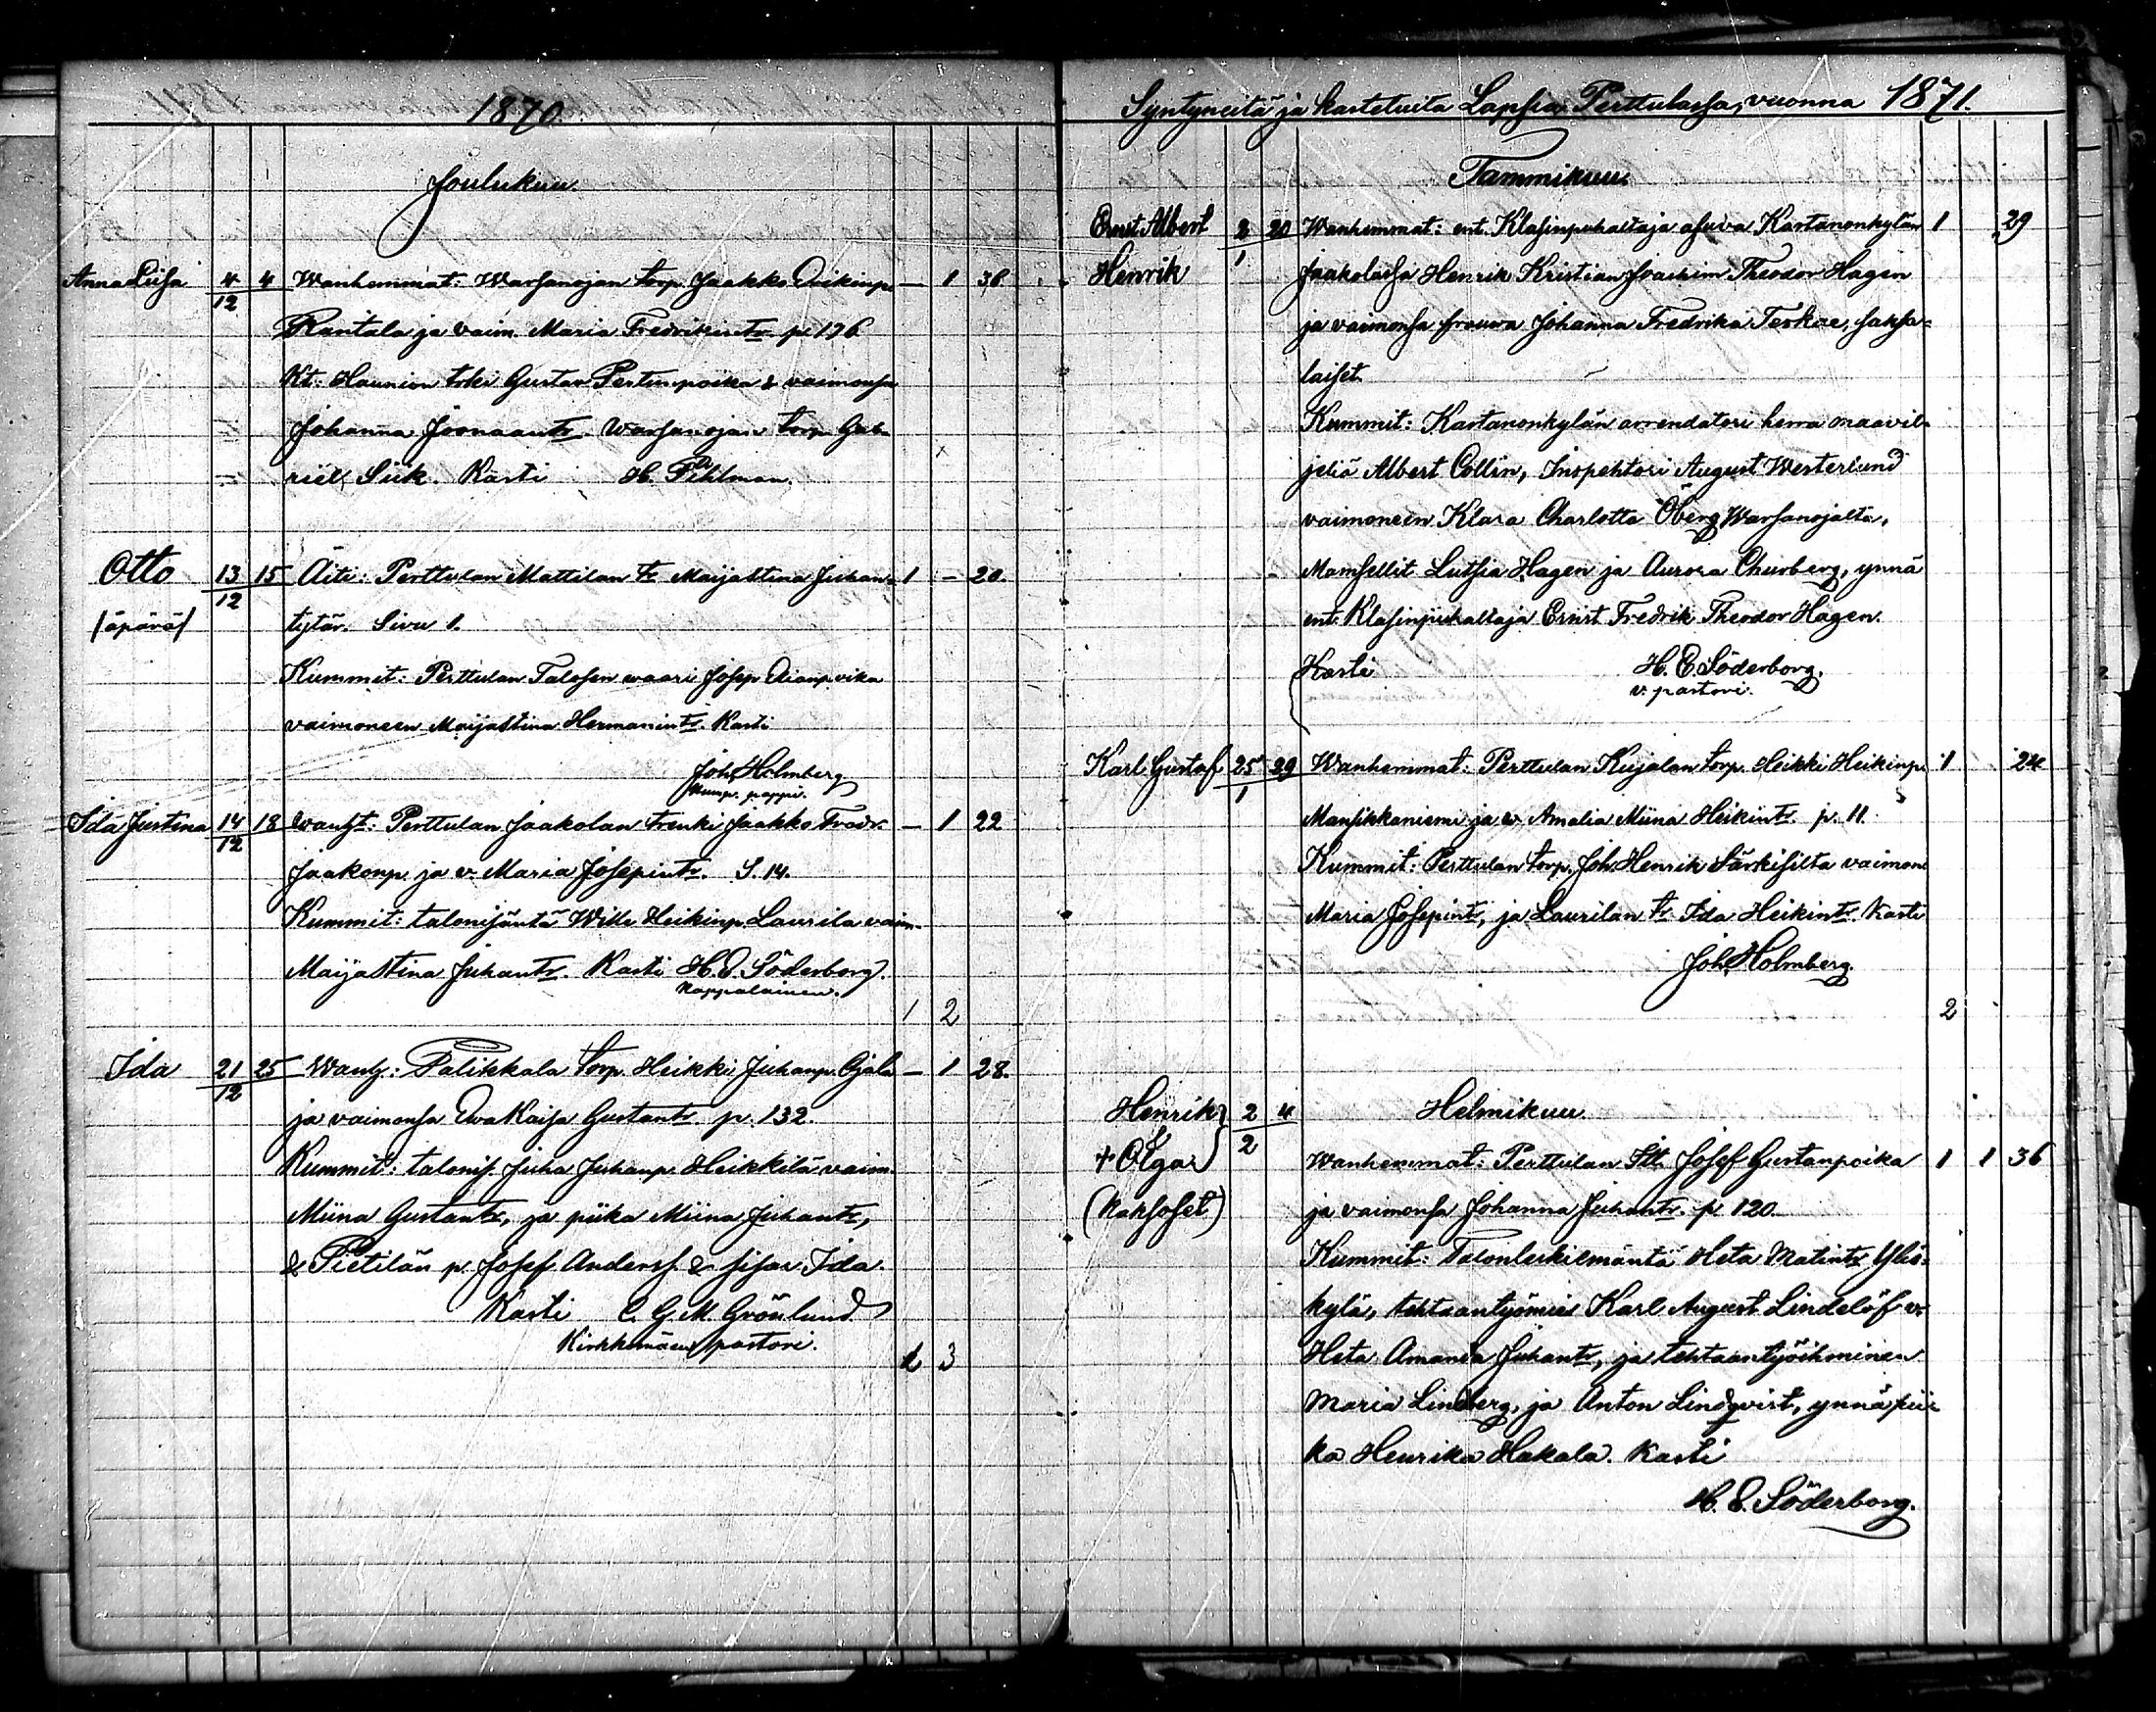 1870.
Joulukuu.
Anna Liisa 4/12 4 Wanhemmat: Warsanojan torp. Jaakko Erikinp. — 1 36
Rantala ja vaim. Maria Fredrikintr. p. 176
Kt: Haunion torki Gustav Pertunpoika & vaimonsa
Johanna Joonaantr. Warsanojan torp. Gab-
riel Siik. Kasti H. Pihlman.
Otto 13/12 15 Äiti: Perttulan Mattilan tr Maijastina Juhan- 1 — 20.
/äpärä/ tytär. Sivu 1.
Kummit: Perttulan Talosen waari Josep
vaimoneen Maijastina Hermanintr. Kasti
Joh. Holmberg
kump. pappi.
Ida Justina 14/12 18 Wanht: Perttulan Jaakolan trenki Jaakko Fredr. — 1 22
Jaakonp. ja v. Maria Josepintr. S. 14.
Kummit: talonisäntä Wille Heikinp. Laurila vaim.
Maijastina Juhantr. Kasti H. E. Söderborg.
Kappalainen.
1 2
Ida 21/12 25 Wanh: Palikkala torp. Heikki Juhanp. Ojala — 1 28.
ja vaimonsa Ewa Kaisa Gustantr. p. 132.
Kummit: talonis. Juha Juhanp. Heikkilä vaim.
Miina Gustantr, ja piika Miina Juhantr,
& Pietilän p. Josef Anderss. & sisar Ida.
Kasti C. G. M. Grönlund
pastori.
3
Syntyneitä ja kastetuita Lapsia Perttulassa, vuonna 1871.
Tammikuu.
Ernst Albert 2/1 20 Wanhemmat: ent. Klasinpuhaltaja asuva Kartanonkylän 1 29
Henrik Jaakolassa Henrik Kristian Joachim Theodor Hagen
ja vaimonsa frouwa Johanna Fredrika Teskae, saksa-
laiset.
Kummit: Kartanonkylän arrendatori herra maavil-
jeliä Albert Collin, Inspehtori August Westerlund
vaimoneen Klara Charlotta Öberg Warsanojalta,
Mamsellit Lutsia Hagen ja Aurora Churberg, ynnä
ent. Klasinpuhaltaja Ernst Fredrik Theodor Hagen.
Kasti H. E. Söderborg.
v. pastori.
Karl Gustaf 25/1 29 Wanhemmat: Perttulan Kujalan torp. Heikki Heikinp. 1 24
Mansikkaniemi ja v. Amalia Miina Heikintr. p. 11.
Kummit: Perttulan torp. Joh. Henrik Särkisilta vaimone
Maria Josepintr, ja Laurilan tr Ida Heikintr. Kasti
Joh. Holmberg.
2
Henrik 2/2 4 Helmikuu.
&
+ Olga Wanhemmat: Perttulan Itl. Josef Gustanpoika 1 1 36
(kaksoset) ja vaimonsa Johanna Juhantr. p. 120.
Kummit: Talonleskiemäntä Heta Matintr Ylis-
kylä, tehtaantyömies Karl August Lindelöf v.
Heta Amanda Juhantr, ja tehtaantyöihminen
Maria Lindberg, ja Anton Lindqvist, ynnä pii-
ka Henrika Hakala. Kasti
H. E. Söderborg.